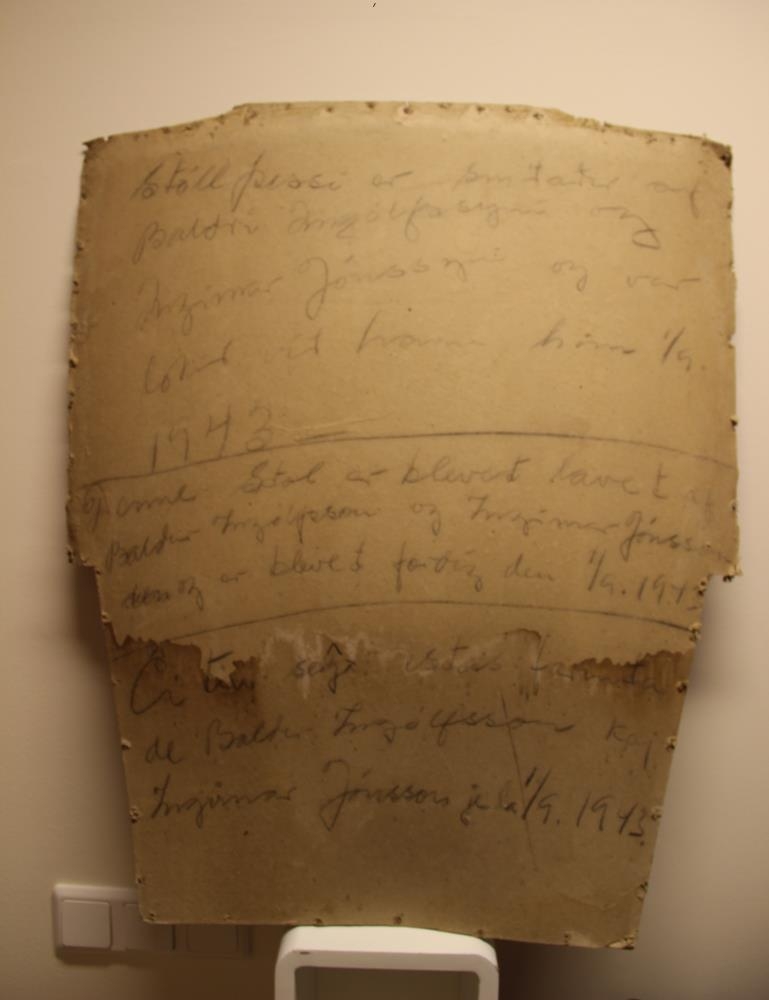 Stóll þessi er smíðaður af
Baldri Ingólfssyni og
Ingimar Jónssyni og var
lokið við hann 1/9.
1943
Denne Stol er blevet lavet af
Balder Ingólfsson og Ingimar Jónsson
og er blevet færdig den 1/9. 1943
Ĉi tiu seĝo estas farita
de Baldur Ingólfsson kaj
Ingimar Jónsson je la 1/9. 1943.